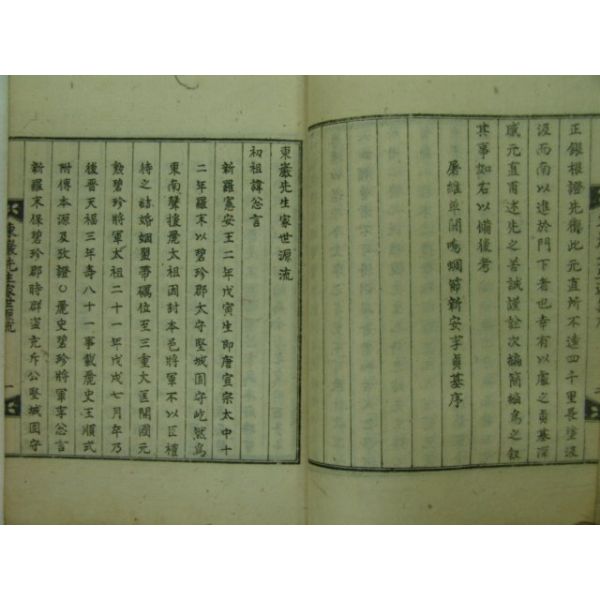 正銀根證先術此元直所不遠四千里長塗設
涇西南以進於門下者也幸有以慮之貞基深
感元直甫述先之善誠謹詮次編簡編爲之敍
其事如右以備後考
屠維單閼鳴蜩節新安李貞基序
東巖先生家世源流
初祖諱忩言
新羅憲安王二年戊寅生卽唐宣宗太中十
二年羅末以碧珍郡太守堅城固守屹然爲
東南聲援麗太祖因封本邑將軍不以臣禮
待之諸婚姻盟帶礪位至三重大匡開國元
勲碧珍將軍太祖二十一年戊戌七月卒乃
後晉天福三年壽八十一事載麗史王順式
附傳本源及攷證○麗史碧珍將軍李忩言
新羅末保碧珍郡時群盜充斥公堅城固守
東巖先生家世源流
一